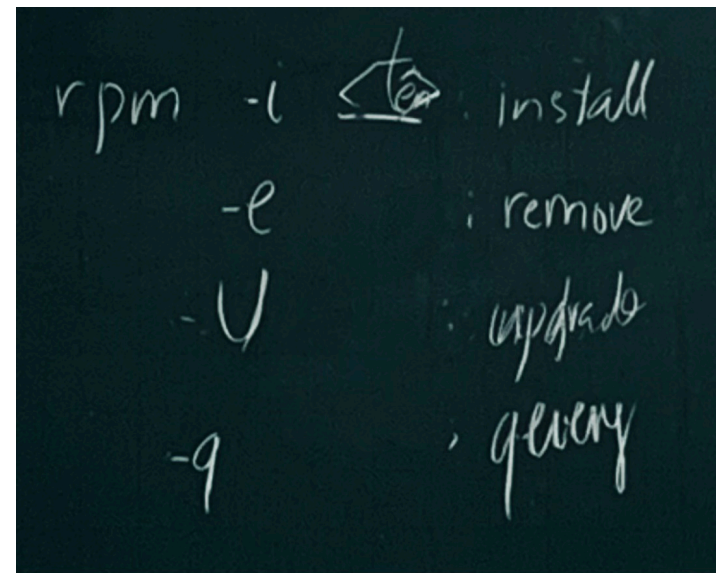 rpm -i <tên> : install
-e : remove
-U : upgrade
-q : qeuery